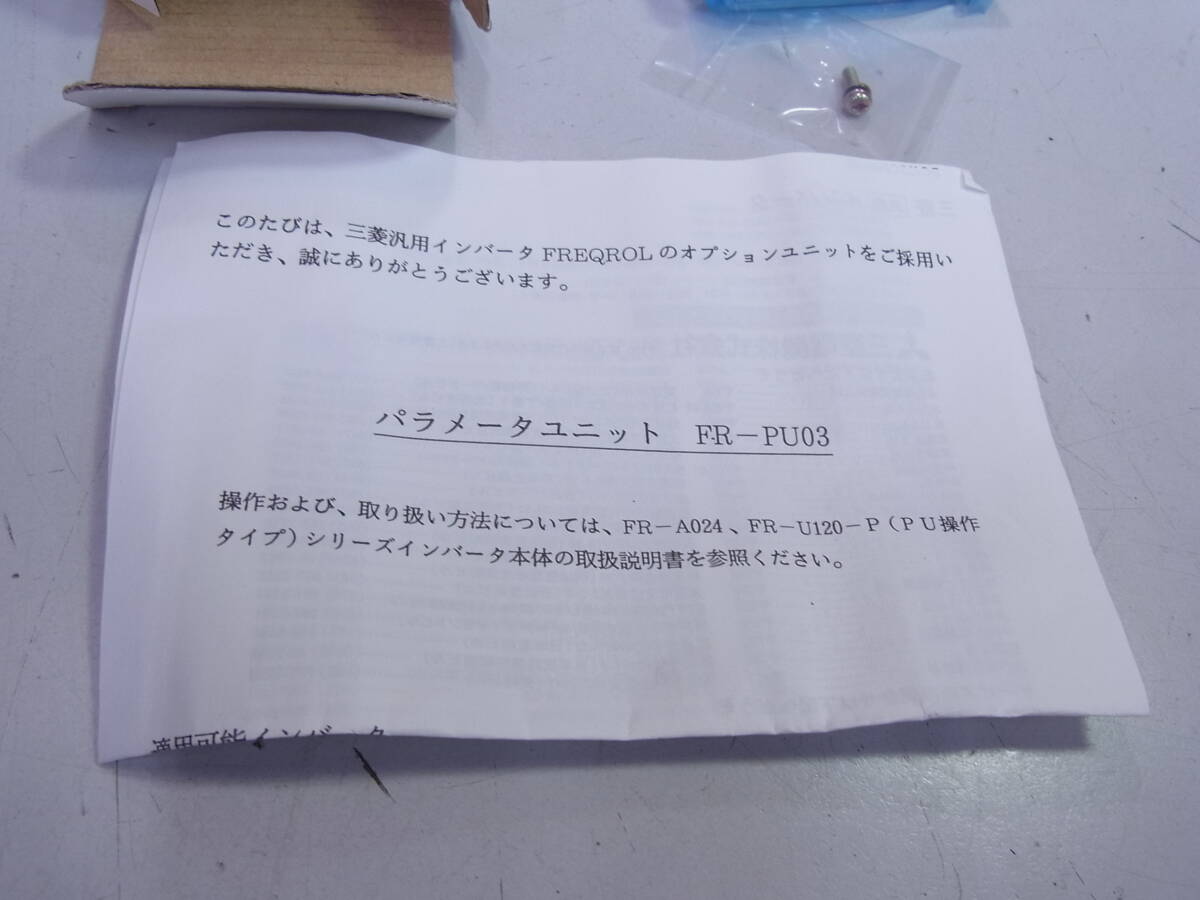 このたびは、三菱汎用インバータFREQROLのオプションユニットをご採用い
ただき、誠にありがとうございます。
パラメータユニット　FR－PU03
操作および、取り扱い方法については、FR－A024、FR－U120－P（PU操作
タイプ）シリーズインバータ本体の取扱説明書を参照ください。
適用可能インバータ